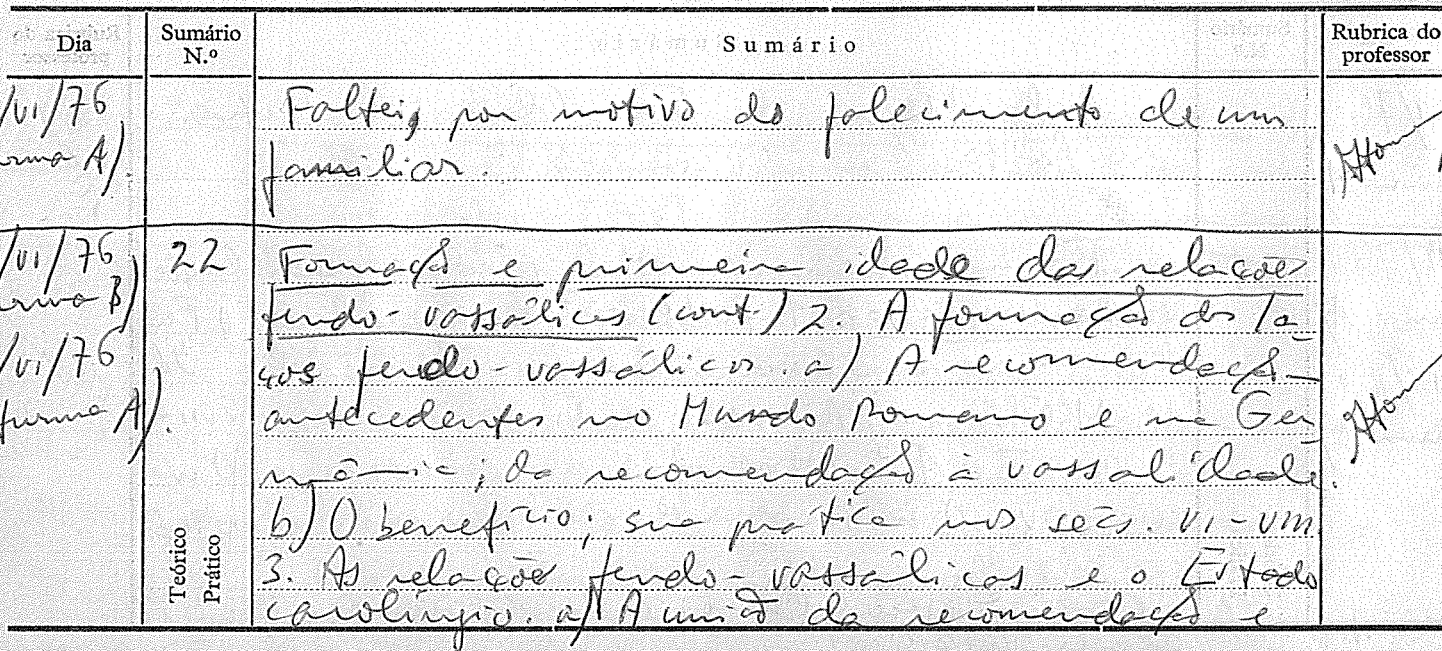 Dia
Sumário N.º
Sumário
Rubrica do professor
/VI/76
Faltei, por motivo do falecimento de um
urma A).
familiar.
/VI/76
22
Formação e primeira idade das relações
urma B)
feudo-vassálicas (cont.) 2. A formação dos la
/VI/76
ços feudo-vassálicos. a) A recomendação -
turma A).
antecedentes no Mundo Romano e na Ger
mânia; da recomendação à vassalidade.
b) O benefício; sua prática nos sécs. VI-VIII.
Teórico
Prático
3. As relações feudo-vassálicas e o Estado
carolíngio. a) A união da recomendação e